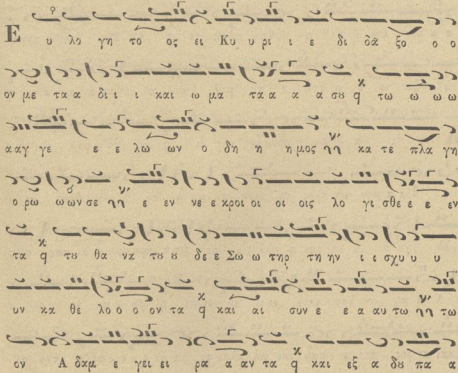 Ε υ λο γη το ος ει Κυ υ ρι ι ε δι δα ξο ο ο
ον με τα α δι ι ι και ω μα τα α α α σου q τω ω ω ω
α αγ γε ε ε λω ων ο δη η η μος κα τε πλα γη
ο ρω ω ων σε ε εν νε ε κροι οι οι οις λο γι σθε ε ε εν
τα q του θα να το υ δε ε Σω ω τηρ τη ην ι ι σχυ υ υ
υν κα θε λο ο ο ον τα q και αι συν ε ε α αυ τω τω
ον Α δαμ ε γει ει ρα α αν τα q και εξ α δου πα α